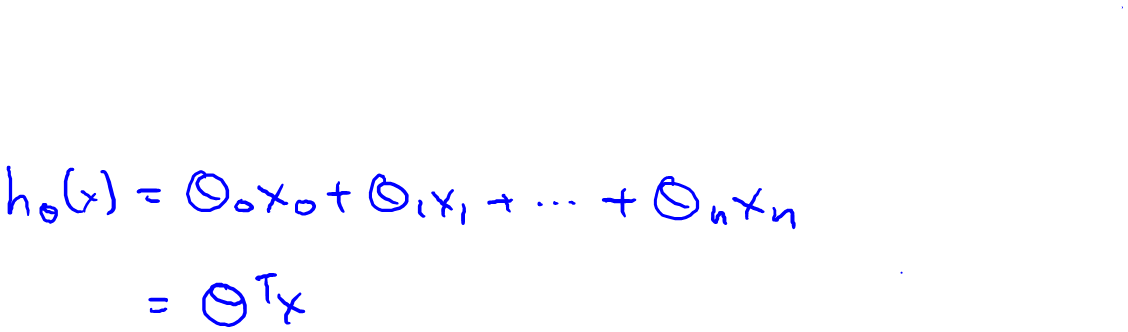 h_θ(x) = θ₀x₀ + θ₁x₁ + ... + θₙxₙ
= θᵀx